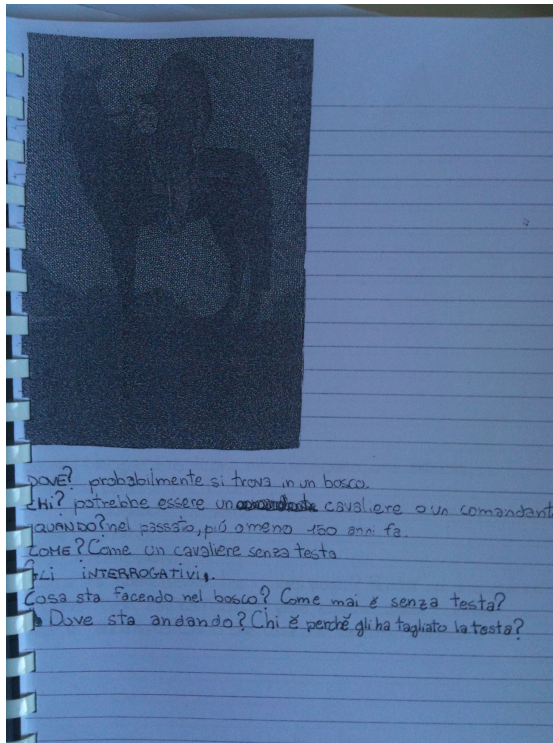 DOVE? probabilmente si trova in un bosco.
CHI? potrebbe essere un cavaliere o un comandant
QUANDO? nel passato, più o meno 150 anni fa.
COME? Come un cavaliere senza testa
GLI INTERROGATIVI.
Cosa sta facendo nel bosco? Come mai è senza testa?
Dove sta andando? Chi e perché gli ha tagliato la testa?